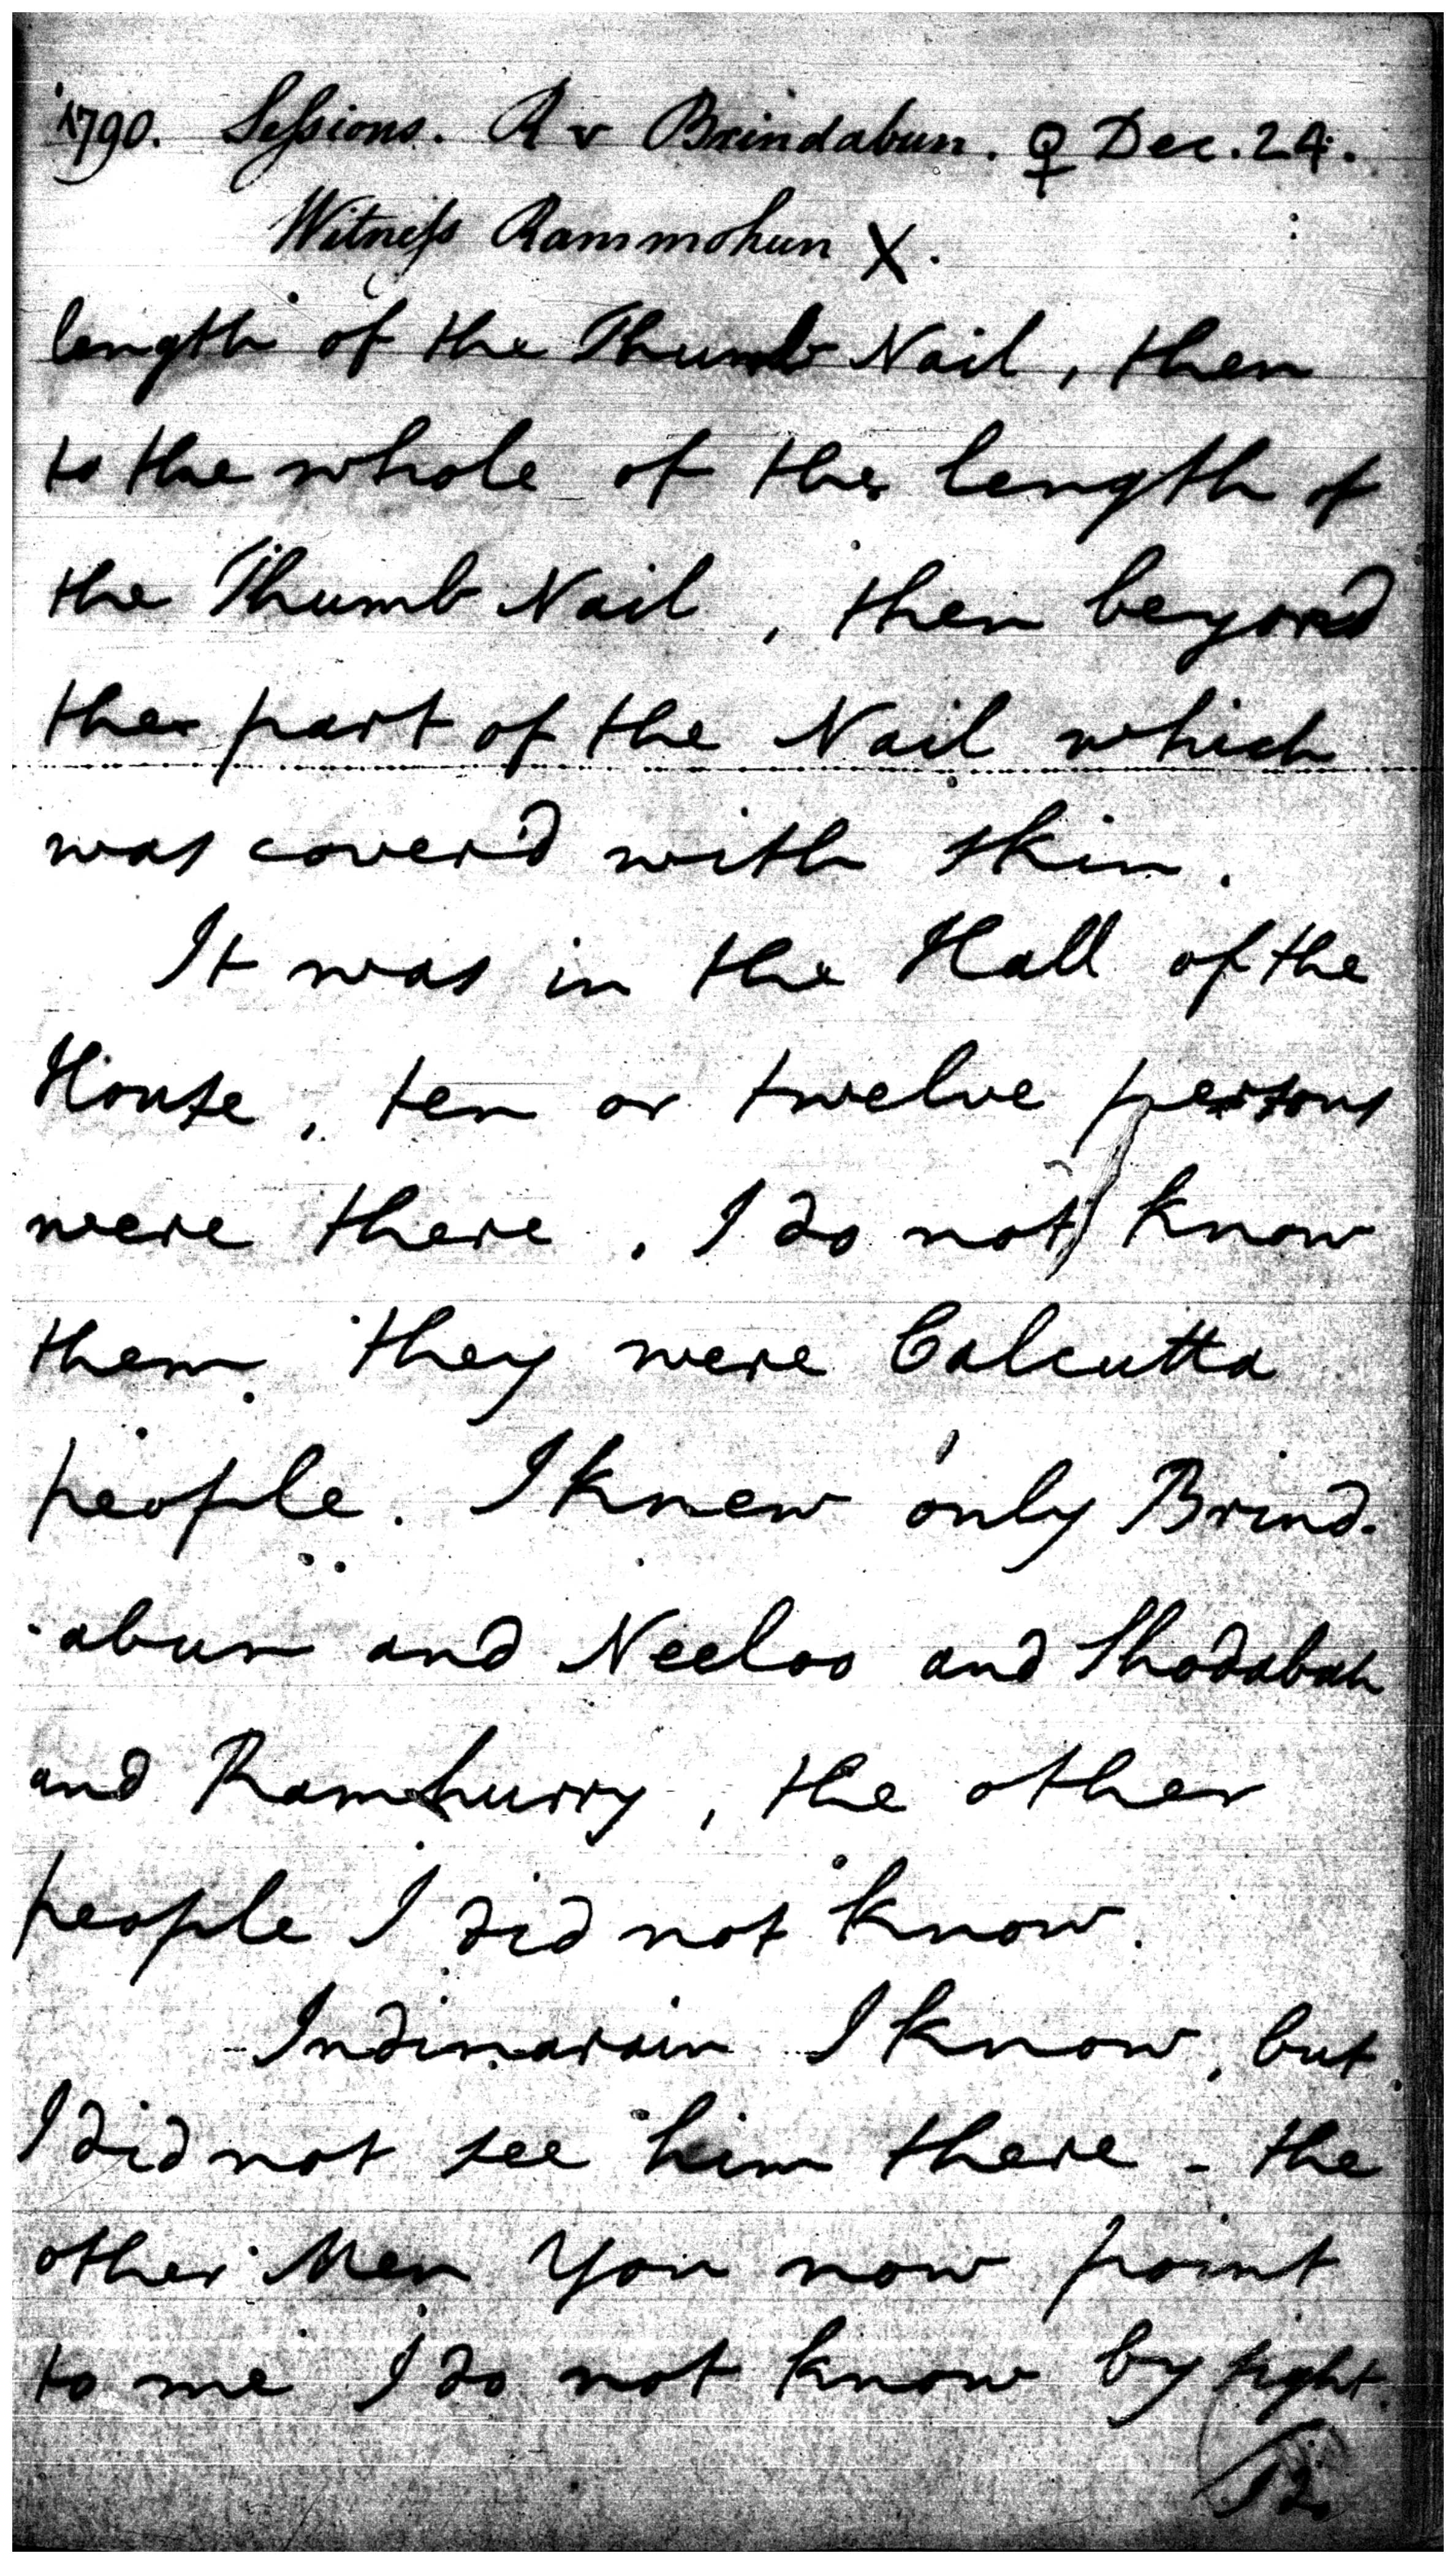 1790. Sessions. R v Brindabun. ♀ Dec. 24.
Witness Rammohun X.
length of the Thumb Nail, then
to the whole of the length of
the Thumb Nail, then beyond
the part of the Nail which
was cover'd with skin.
It was in the Hall of the
House, ten or twelve persons
were there. I do not know
them they were Calcutta
people. I knew only Brind-
-abun and Neeloo and Shodabah
and Ramhurry, the other
people I did not know.
Indinarain I know, but
I did not see him there - the
other Men You now point
to me I do not know by sight.